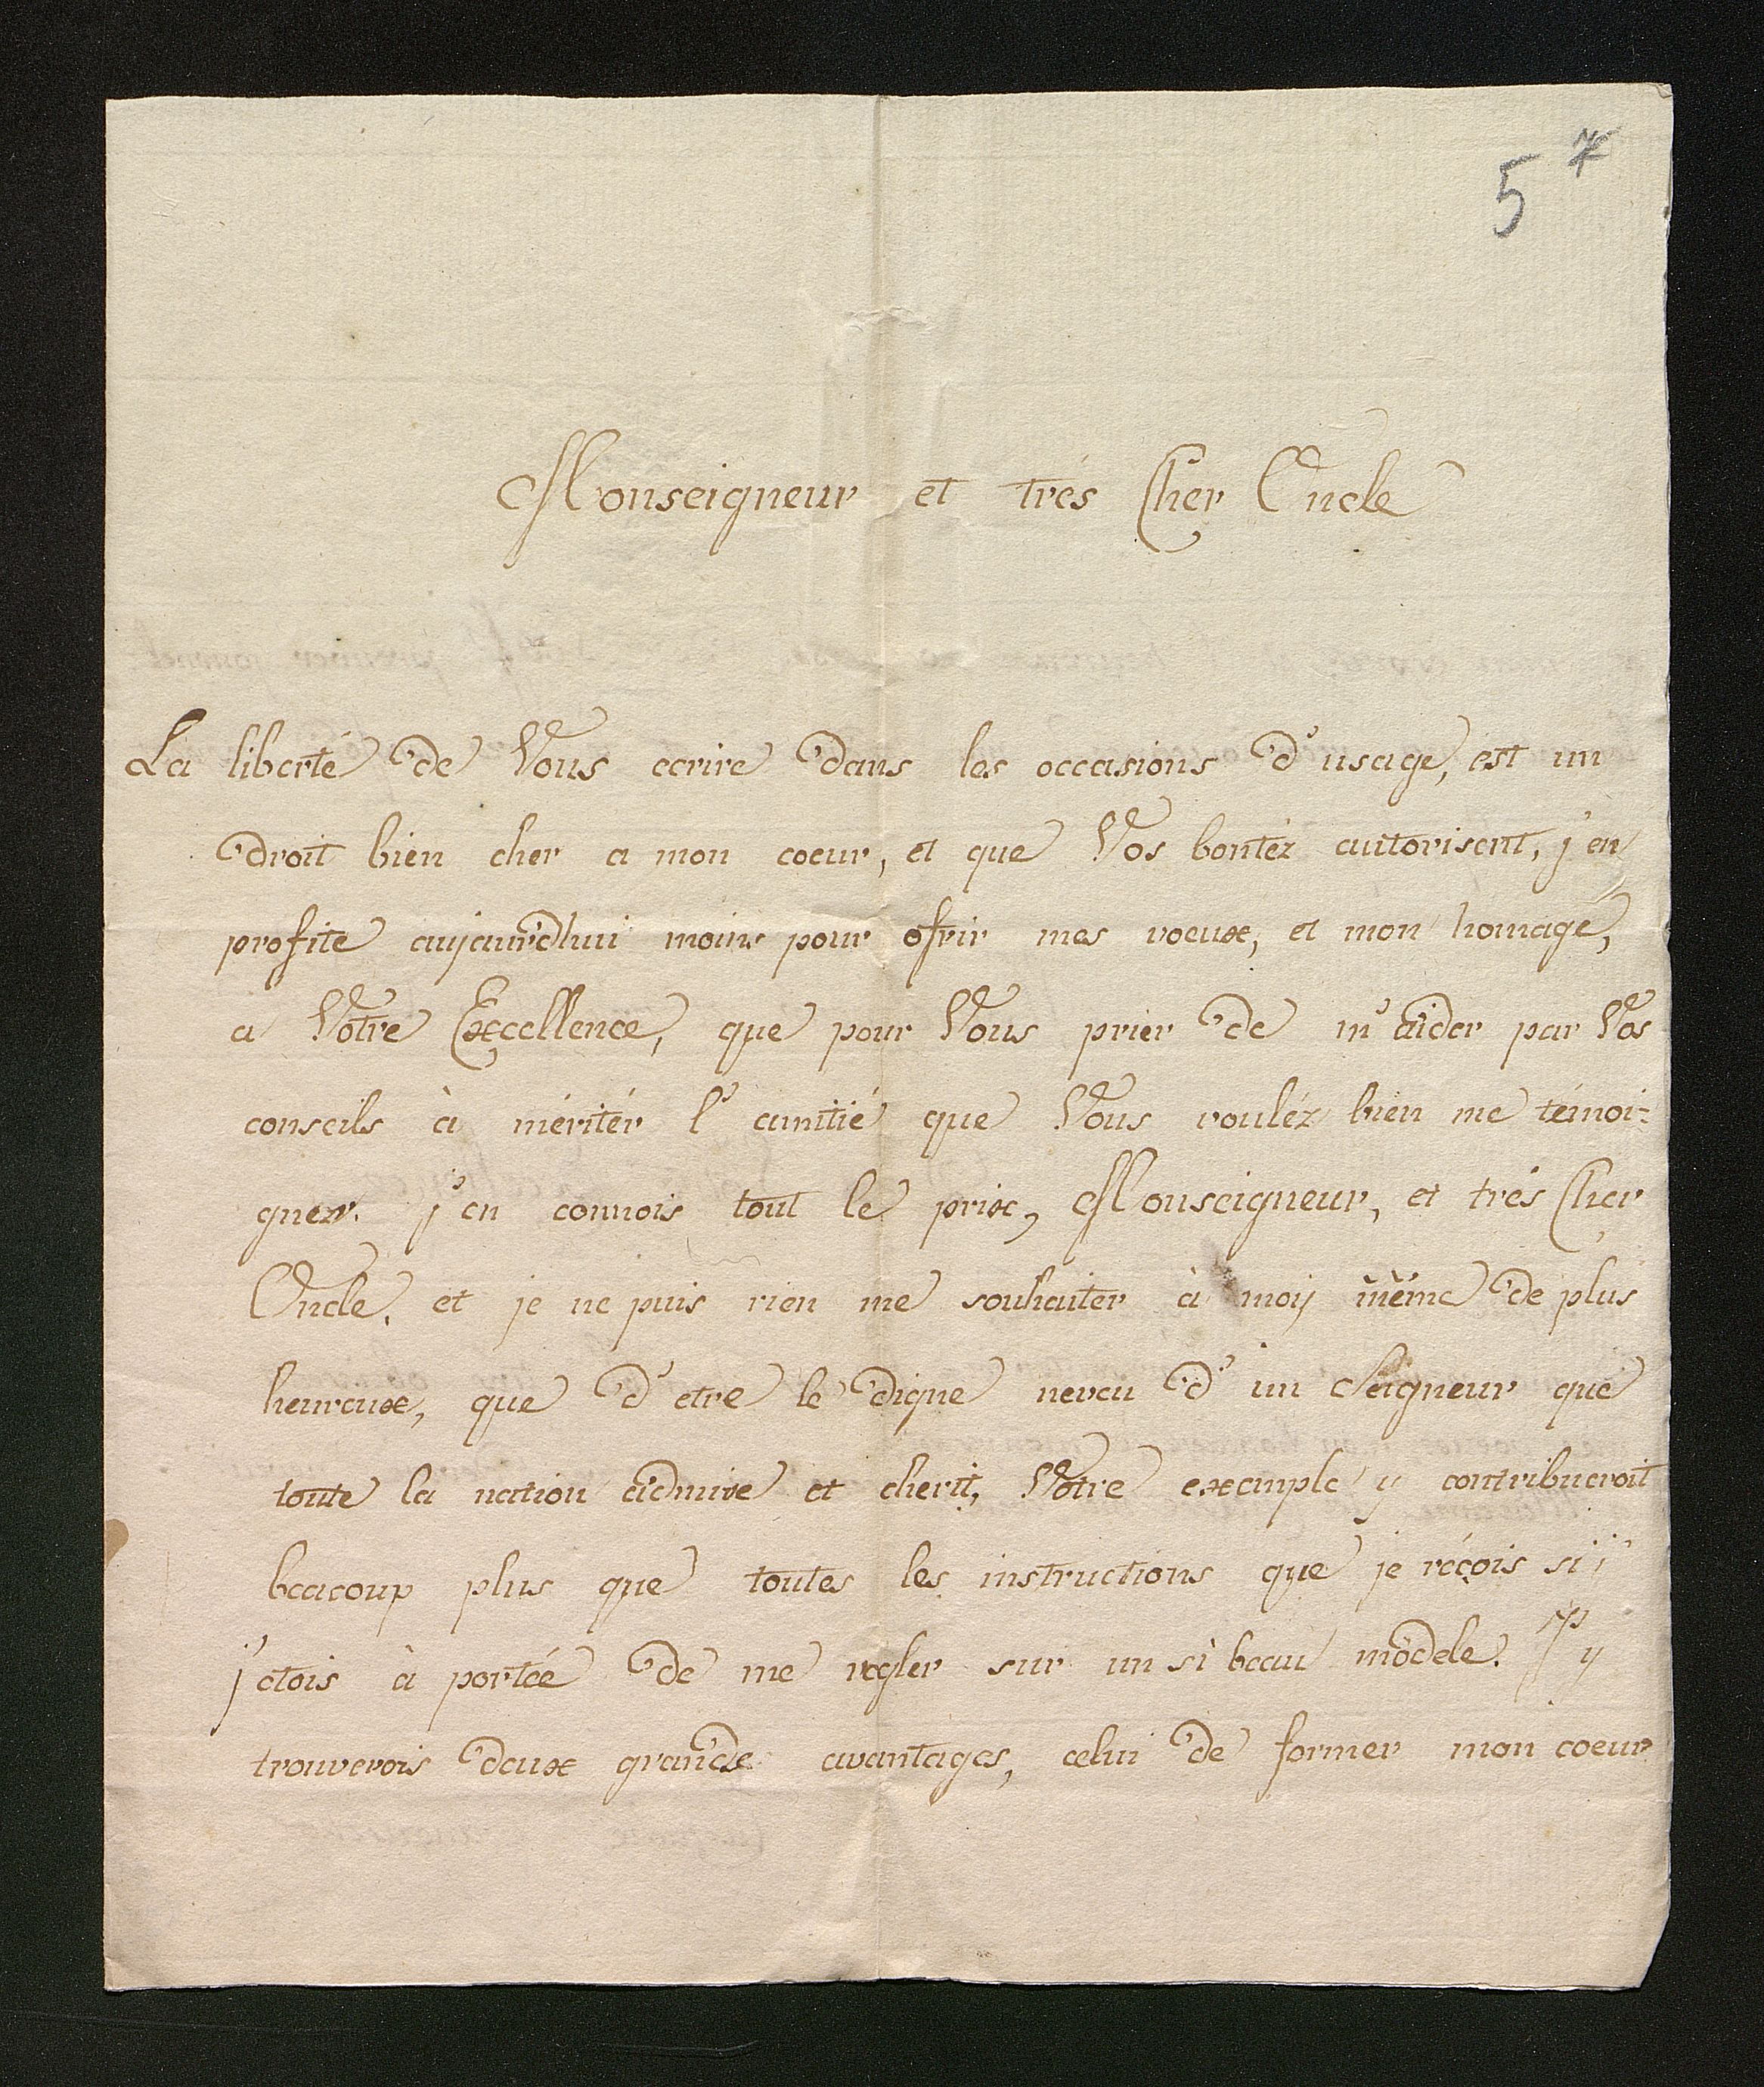 5 *
Monseigneur et trés Cher Oncle
La liberté de Vous ecrire dans les occasions d'usage, est un
droit bien cher a mon coeur, et que Vos bontéz autorisent, j'en
profite aujourd'hui moins pour ofrir mes voeux, et mon homage,
a Votre Excellence, que pour Vous prier de m'aider par Vos
conseils à méritér l'amitié que Vous vouléz bien me témoi=
gner. j'en connois tout le prix, Monseigneur, et trés Cher
Oncle, et je ne puis rien me souhaiter à moy même de plus
heureux, que d'etre le digne neveu d'un Seigneur que
toute la nation admire et cherit, Votre exemple y contribueroit
beacoup plus que toutes les instructions que je réçois si j'
j'etois à portée de me regler sur un si beau modele. J'y
trouverois deux grands avantages, celui de former mon coeur